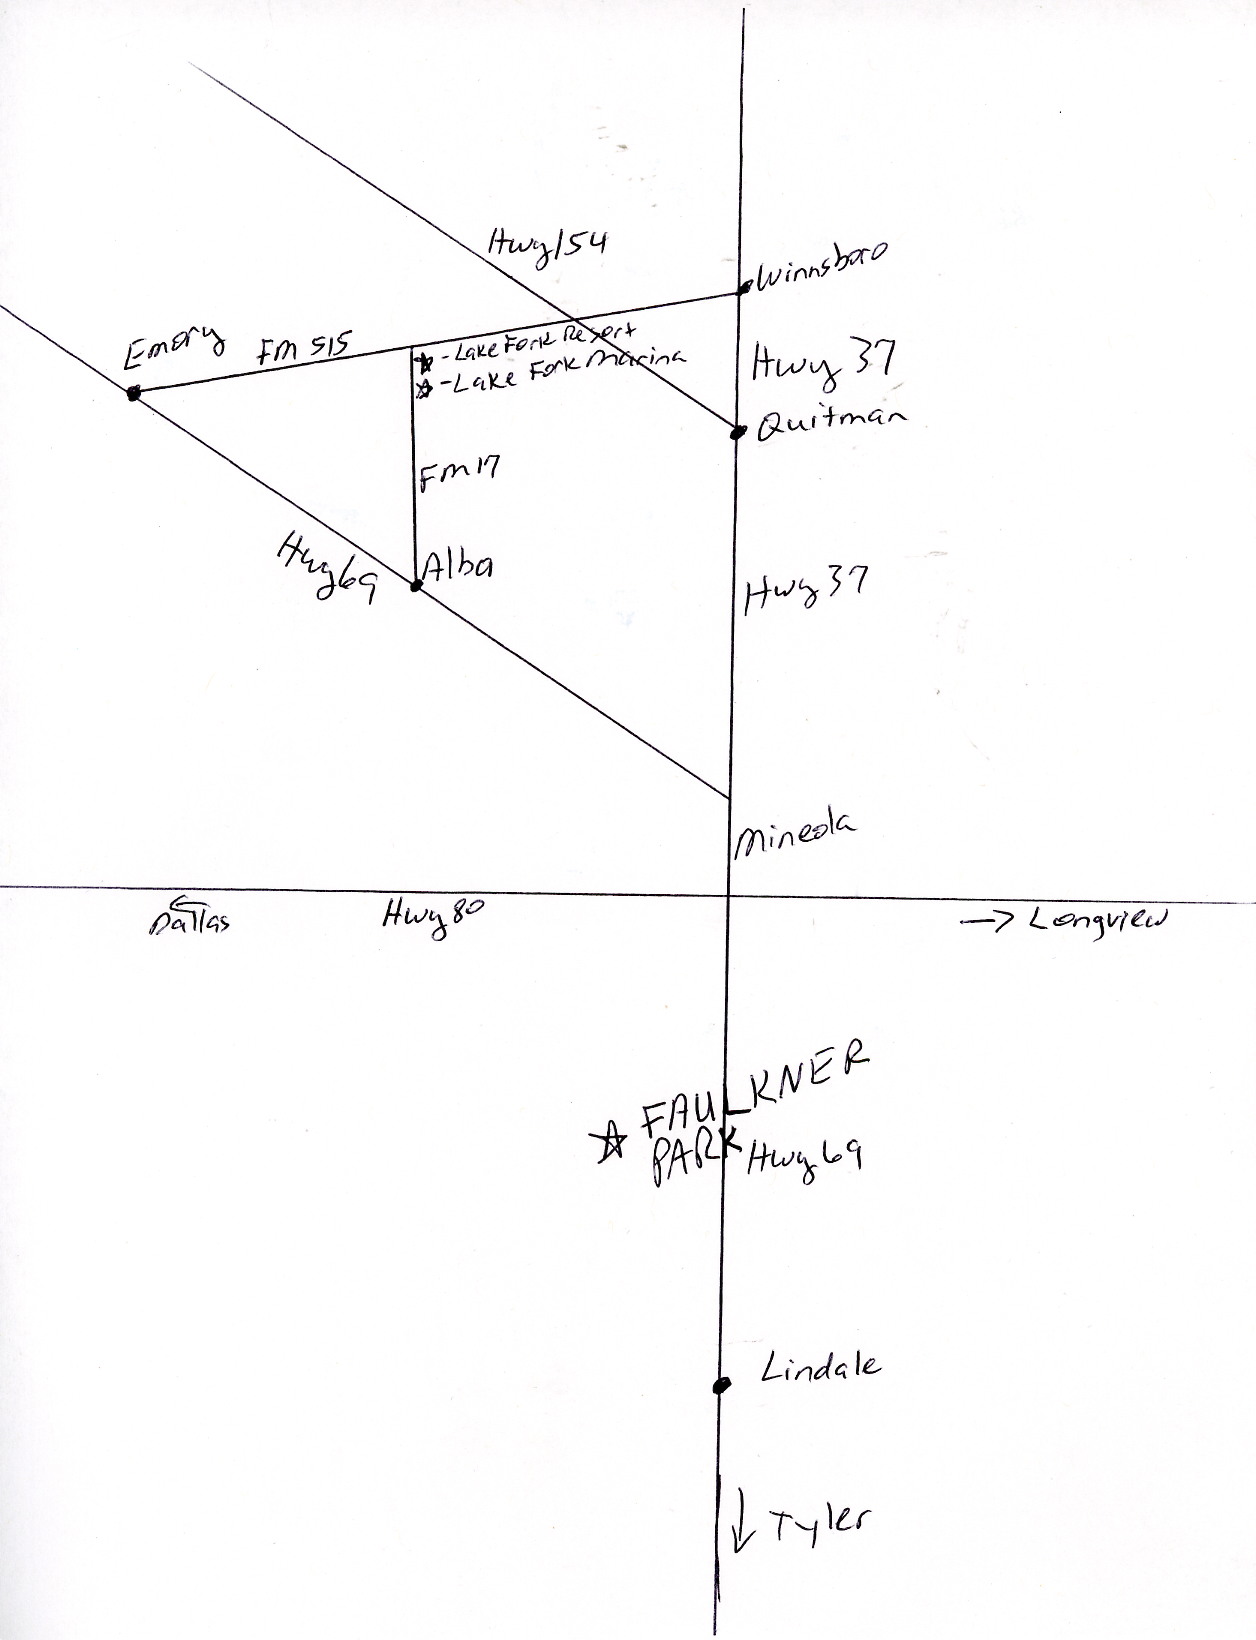 Hwy 154
Winnsboro
Emory
FM 515
- Lake Fork Resort
- Lake Fork Marina
Hwy 37
Quitman
Fm 17
Hwy 69
Alba
Hwy 37
Mineola
Dallas
Hwy 80
→ Longview
FAULKNER
PARK
Hwy 69
Lindale
Tyler